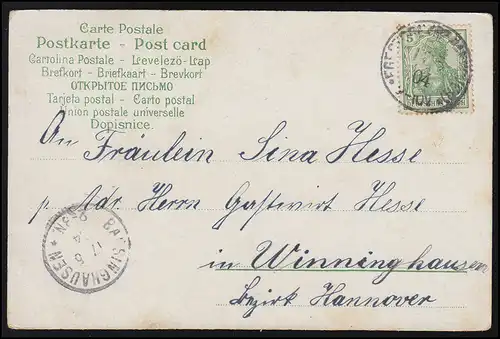 Carte Postale
Postkarte - Post card
Cartolina Postale - Levelezö-Lap
Brefkort - Briefkaart - Brevkort
ОТКРЫТОЕ ПИСЬМО
Tarjeta postal - Carto postal
Union postale universelle
Dopisnice.
An
Fräulein Sina Hesse
p. Adr. Herrn Gastwirt Hesse
in Winninghausen
Bezirk Hannover
BARSINGHAUSEN
17 5
04